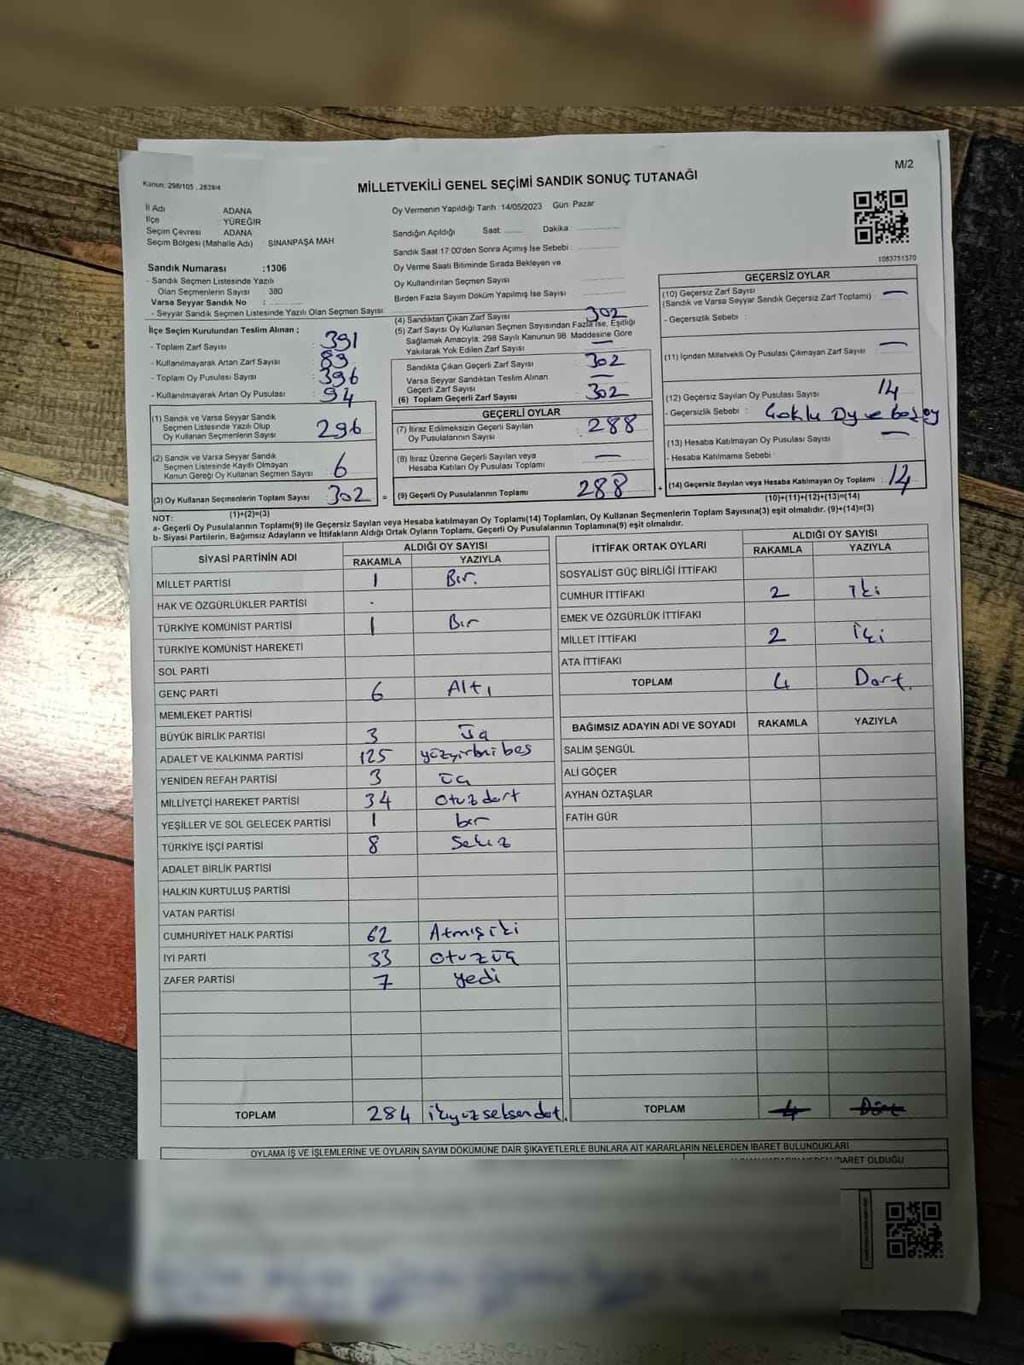 M/2
Kanun: 298/105 , 2839/4
MİLLETVEKİLİ GENEL SEÇİMİ SANDIK SONUÇ TUTANAĞI
İl Adı ADANA
İlçe : YÜREĞİR
Seçim Çevresi ADANA
Seçim Bölgesi (Mahalle Adı) SİNANPAŞA MAH
Oy Vermenin Yapıldığı Tarih :14/05/2023 Gün: Pazar
Sandığın Açıldığı Saat: Dakika:
Sandık Saat 17:00'den Sonra Açımış İse Sebebi :
Oy Verme Saati Bitiminde Sırada Bekleyen ve
Oy Kullandırılan Seçmen Sayısı
Birden Fazla Sayım Döküm Yapılmış İse Sayısı
1063751370
Sandık Numarası :1306
- Sandık Seçmen Listesinde Yazılı
Olan Seçmenlerin Sayısı 380
Varsa Seyyar Sandık No :
- Seyyar Sandık Seçmen Listesinde Yazılı Olan Seçmen Sayısı:
İlçe Seçim Kurulundan Teslim Alınan ;
- Toplam Zarf Sayısı : 391
- Kullanılmayarak Artan Zarf Sayısı : 89
- Toplam Oy Pusulası Sayısı : 396
- Kullanılmayarak Artan Oy Pusulası : 94
(1) Sandık ve Varsa Seyyar Sandık
Seçmen Listesinde Yazılı Olup
Oy Kullanan Seçmenlerin Sayısı : 296
(2) Sandık ve Varsa Seyyar Sandık
Seçmen Listesinde Kayıtlı Olmayan
Kanun Gereği Oy Kullanan Seçmen Sayısı : 6
(3) Oy Kullanan Seçmenlerin Toplam Sayısı : 302 =
(1)+(2)=(3)
(4) Sandıktan Çıkan Zarf Sayısı : 302
(5) Zarf Sayısı Oy Kullanan Seçmen Sayısından Fazla ise, Eşitliği
Sağlamak Amacıyla, 298 Sayılı Kanunun 98. Maddesine Göre
Yakılarak Yok Edilen Zarf Sayısı : —
Sandıkta Çıkan Geçerli Zarf Sayısı : 302
Varsa Seyyar Sandıktan Teslim Alınan
Geçerli Zarf Sayısı : —
(6) Toplam Geçerli Zarf Sayısı : 302
GEÇERLİ OYLAR
(7) İtiraz Edilmeksizin Geçerli Sayılan
Oy Pusulasının Sayısı : 288
(8) İtiraz Üzerine Geçerli Sayılan veya
Hesaba Katılan Oy Pusulası Toplamı : —
(9) Geçerli Oy Pusulalarının Toplamı : 288 +
GEÇERSİZ OYLAR
(10) Geçersiz Zarf Sayısı : —
(Sandık ve Varsa Seyyar Sandık Geçersiz Zarf Toplamı)
- Geçersizlik Sebebi :
(11) İçinden Milletvekili Oy Pusulası Çıkmayan Zarf Sayısı : —
(12) Geçersiz Sayılan Oy Pusulası Sayısı : 14
- Geçersizlik Sebebi : Çoklu Oy ve boş oy
(13) Hesaba Katılmayan Oy Pusulası Sayısı : —
- Hesaba Katılmama Sebebi :
(14) Geçersiz Sayılan veya Hesaba Katılmayan Oy Toplamı : 14
(10)+(11)+(12)+(13)=(14)
NOT:
a- Geçerli Oy Pusulalarının Toplamı(9) ile Geçersiz Sayılan veya Hesaba katılmayan Oy Toplamı(14) Toplamları, Oy Kullanan Seçmenlerin Toplam Sayısına(3) eşit olmalıdır. (9)+(14)=(3)
b- Siyasi Partilerin, Bağımsız Adayların ve İttifakların Aldığı Oyların Toplamı, Geçerli Oy Pusulalarının Toplamına(9) eşit olmalıdır.
SİYASİ PARTİNİN ADI ALDIĞI OY SAYISI
RAKAMLA YAZIYLA
MİLLET PARTİSİ 1 Bir.
HAK VE ÖZGÜRLÜKLER PARTİSİ
TÜRKİYE KOMÜNİST PARTİSİ 1 Bir
TÜRKİYE KOMÜNİST HAREKETİ
SOL PARTİ
GENÇ PARTİ 6 Altı
MEMLEKET PARTİSİ
BÜYÜK BİRLİK PARTİSİ 3 üç
ADALET VE KALKINMA PARTİSİ 125 yüzyirmi beş
YENİDEN REFAH PARTİSİ 3 üç
MİLLİYETÇİ HAREKET PARTİSİ 34 otuz dört
YEŞİLLER VE SOL GELECEK PARTİSİ 1 bir
TÜRKİYE İŞÇİ PARTİSİ 8 Sekiz
ADALET BİRLİK PARTİSİ
HALKIN KURTULUŞ PARTİSİ
VATAN PARTİSİ
CUMHURİYET HALK PARTİSİ 62 Atmış iki
İYİ PARTİ 33 otuz üç
ZAFER PARTİSİ 7 yedi
TOPLAM 284 ikiyüz seksen dört.
İTTİFAK ORTAK OYLARI ALDIĞI OY SAYISI
RAKAMLA YAZIYLA
SOSYALİST GÜÇ BİRLİĞİ İTTİFAKI
CUMHUR İTTİFAKI 2 İki
EMEK VE ÖZGÜRLÜK İTTİFAKI
MİLLET İTTİFAKI 2 İki
ATA İTTİFAKI
TOPLAM 4 Dört.
BAĞIMSIZ ADAYIN ADI VE SOYADI RAKAMLA YAZIYLA
SALİM ŞENGÜL
ALİ GÖÇER
AYHAN ÖZTAŞLAR
FATİH GÜR
TOPLAM 4 Dört
OYLAMA İŞ VE İŞLEMLERİNE VE OYLARIN SAYIM DÖKÜMÜNE DAİR ŞİKAYETLERLE BUNLARA AİT KARARLARIN NELERDEN İBARET BULUNDUKLARI
İBARET OLDUĞU